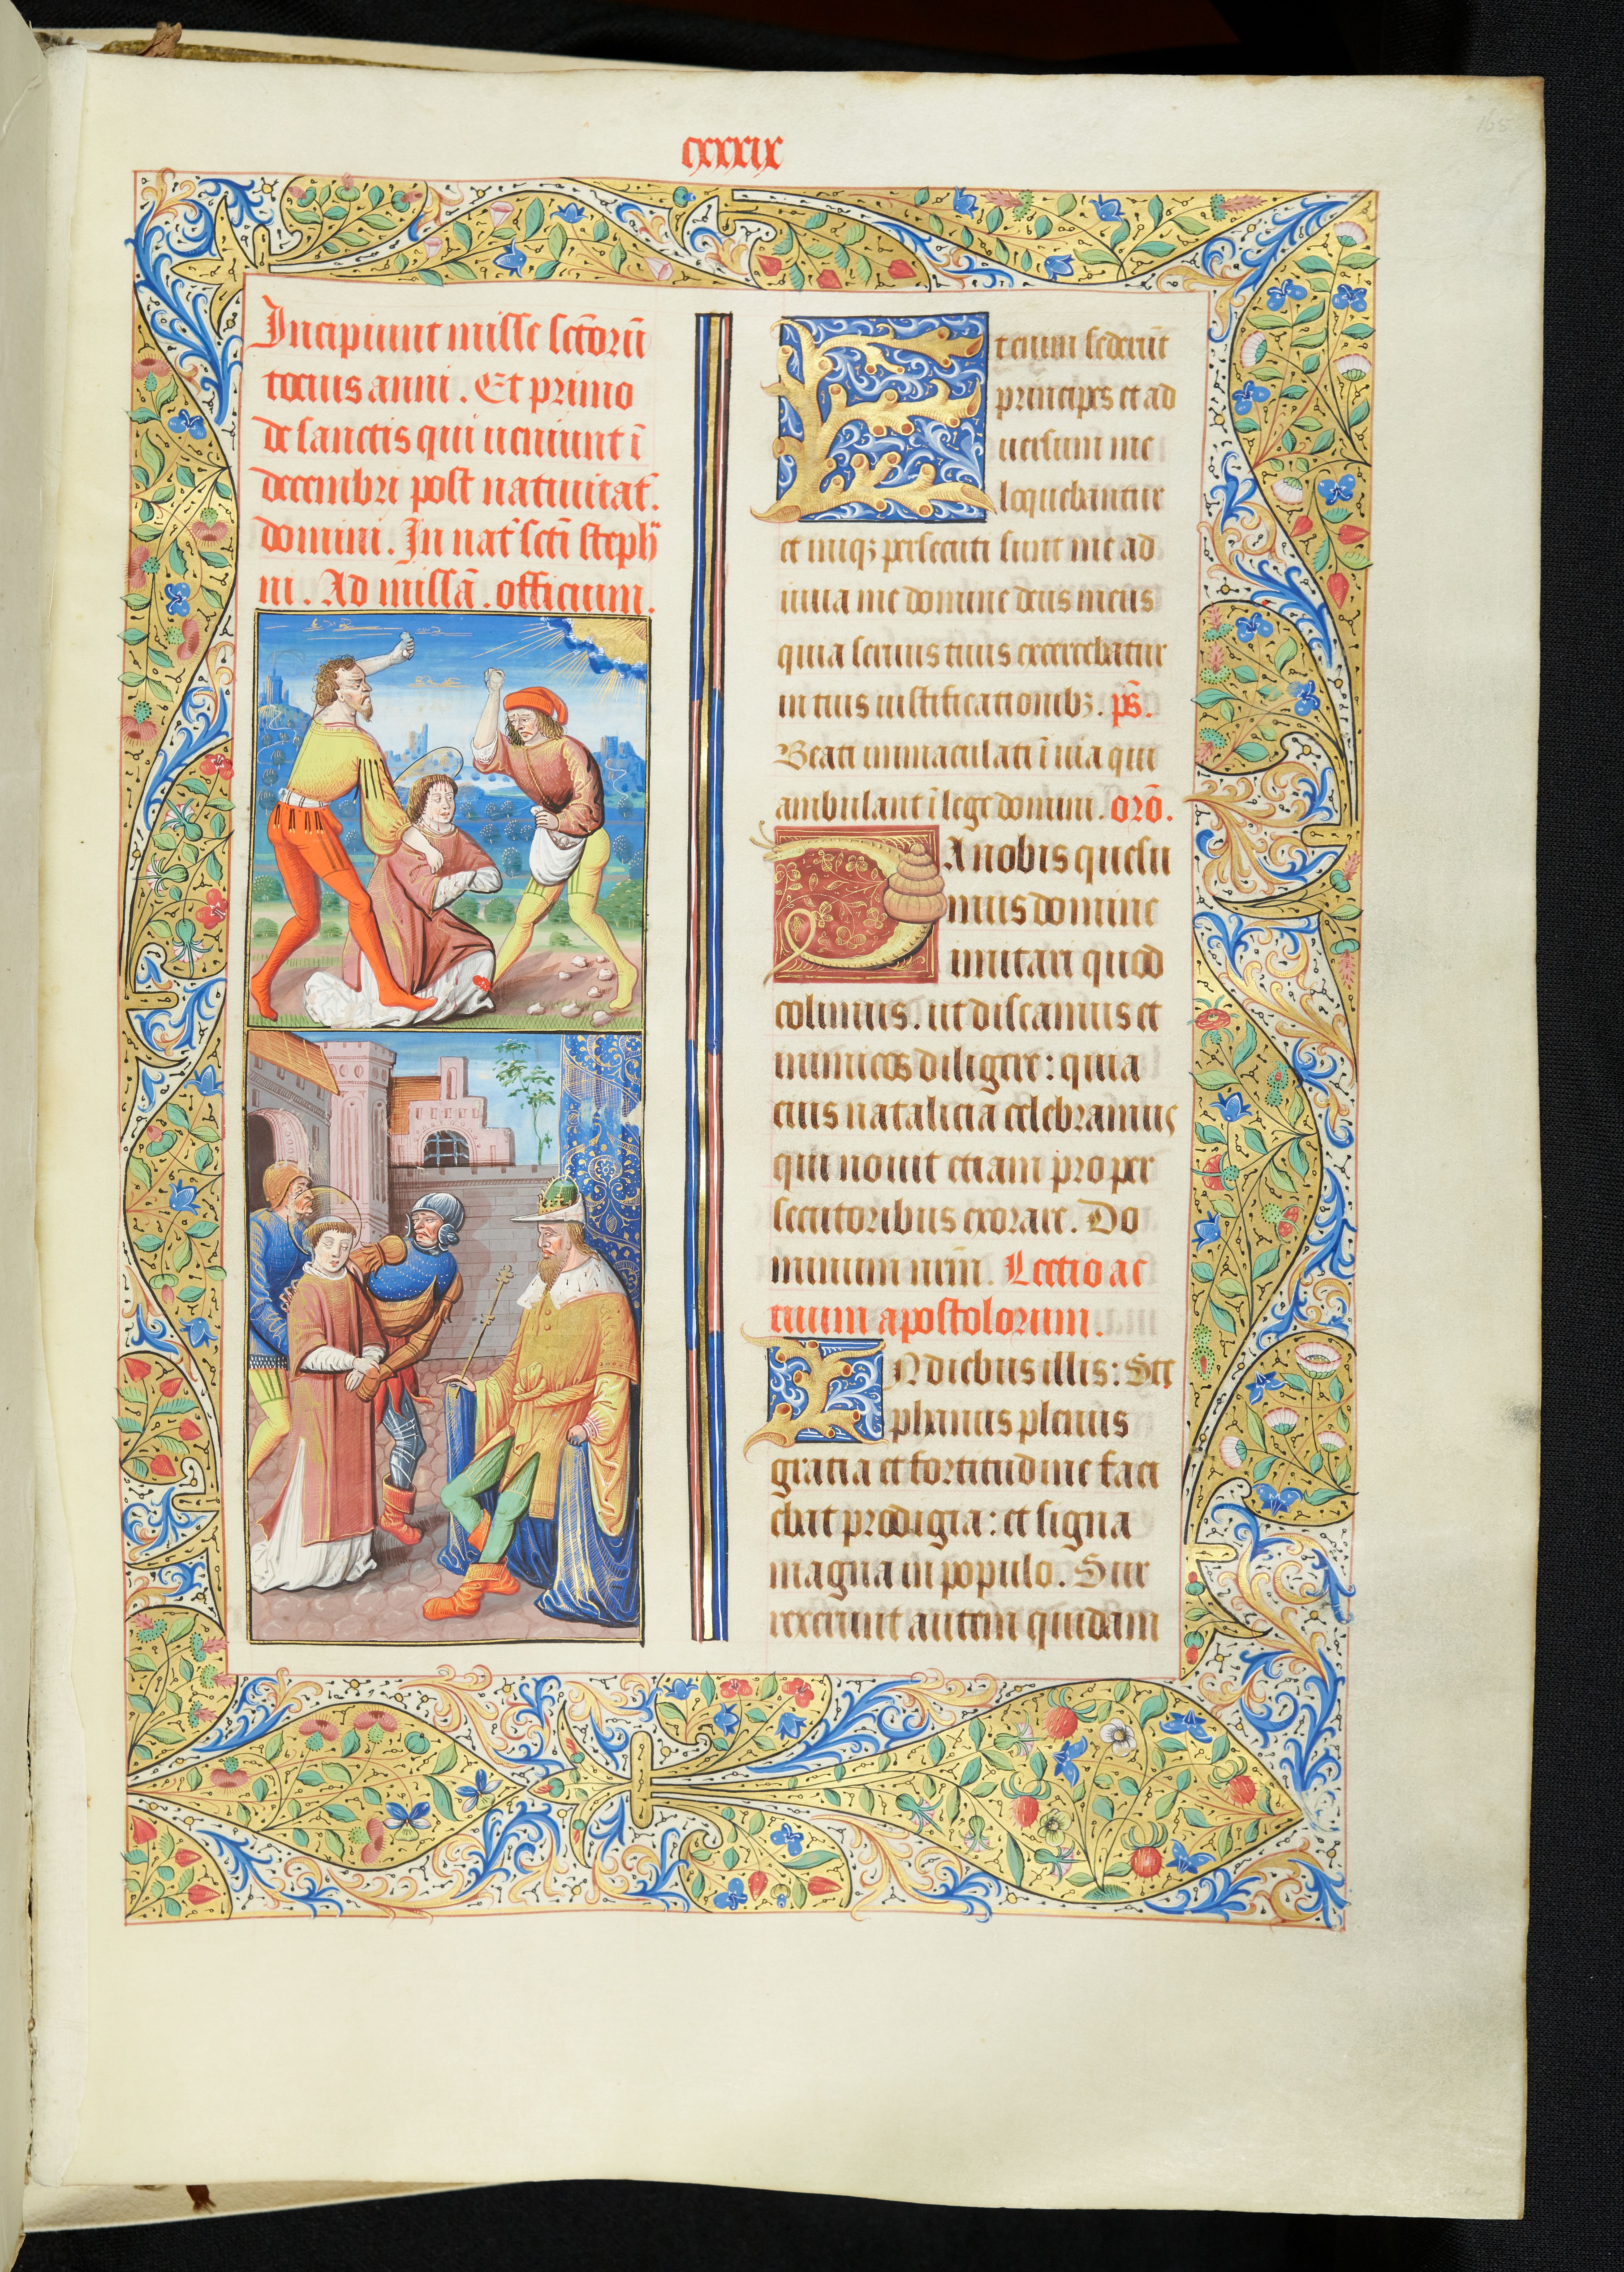 165
cxxxxix
Incipiunt misse sctōrū
tocius anni. Et primo
de sanctis qui ueniunt ī
decembri post natiuitat̄.
domini. In nat̄ scti steph
ni. Ad missā. officium.
Etenim sederūt
principes et ad
uersum me
loquebantur
et iniqꝫ persecuti sunt me ad
iuua me domine deus meus
quia seruus tuus exercebatur
in tuis iustificationibꝫ. ps̄.
Beati immaculati ī uia qui
ambulant ī lege domini. orō.
DA nobis quesu
mus domine
imitari quod
colimus. ut discamus et
inimicos diligere: quia
eius natalicia celebramus
qui nouit etiam pro per
secutoribus exorare. Do
minum nr̄m. Lectio ac
tuum apostolorum.
IN diebus illis: Ste
phanus plenus
gratia et fortitudine faci
ebat prodigia: et signa
magna in populo. Sur
rexerunt autem quidam